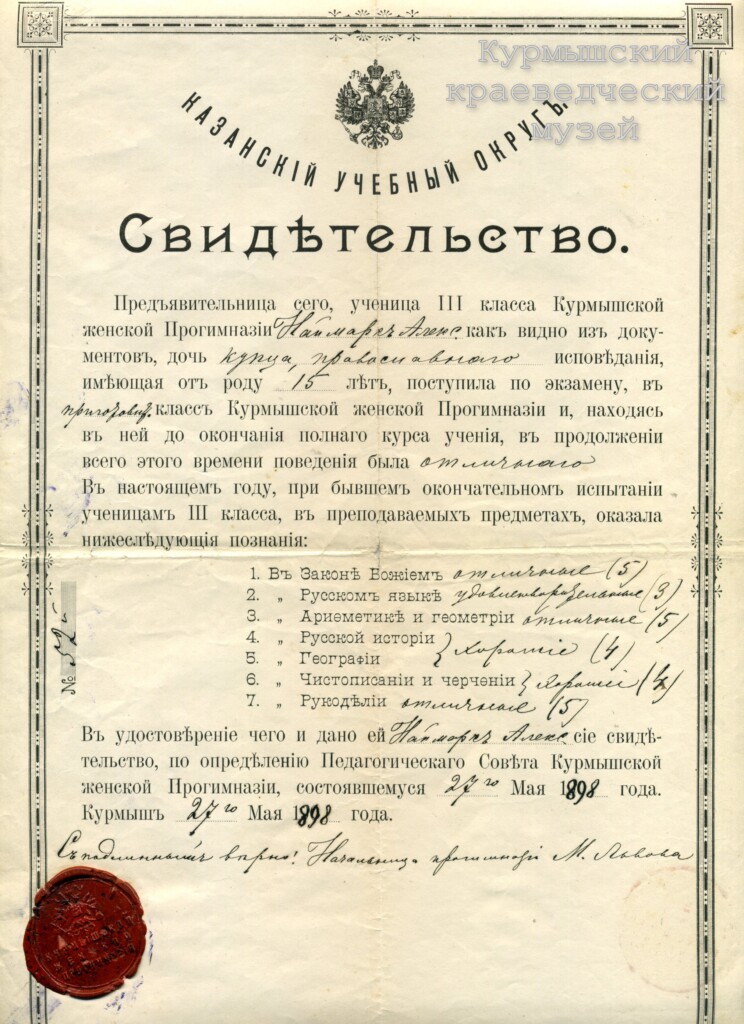 Курмышский
краеведческий
музей
КАЗАНСКІЙ УЧЕБНЫЙ ОКРУГЪ.
Свидѣтельство.
Предъявительница сего, ученица III класса Курмышской
женской Прогимназіи Наймаркъ Алекс. какъ видно изъ доку-
ментовъ, дочь купца, православнаго исповѣданія,
имѣющая отъ роду 15 лѣтъ, поступила по экзамену, въ
пригото классъ Курмышской женской Прогимназіи и, находясь
въ ней до окончанія полнаго курса ученія, въ продолженіи
всего этого времени поведенія была отличнаго
Въ настоящемъ году, при бывшемъ окончательномъ испытаніи
ученицамъ III класса, въ преподаваемыхъ предметахъ, оказала
нижеслѣдующія познанія:
1. Въ Законѣ Божіемъ отличные (5)
2. „ Русскомъ языкѣ удовлетворительные (3)
3. „ Ариѳметикѣ и геометріи отличные (5)
4. „ Русской исторіи
5. „ Географіи } хорошіе (4)
6. „ Чистописаніи и черченіи } хорошіе (4)
7. „ Рукодѣліи отличные (5)
№ 52
Въ удостовѣреніе чего и дано ей Наймаркъ Алекс. сіе свидѣ-
тельство, по опредѣленію Педагогическаго Совѣта Курмышской
женской Прогимназіи, состоявшемуся 27го Мая 1898 года.
Курмышъ 27го Мая 1898 года.
Съ подлиннымъ вѣрно! Начальница прогимназіи М. Львова